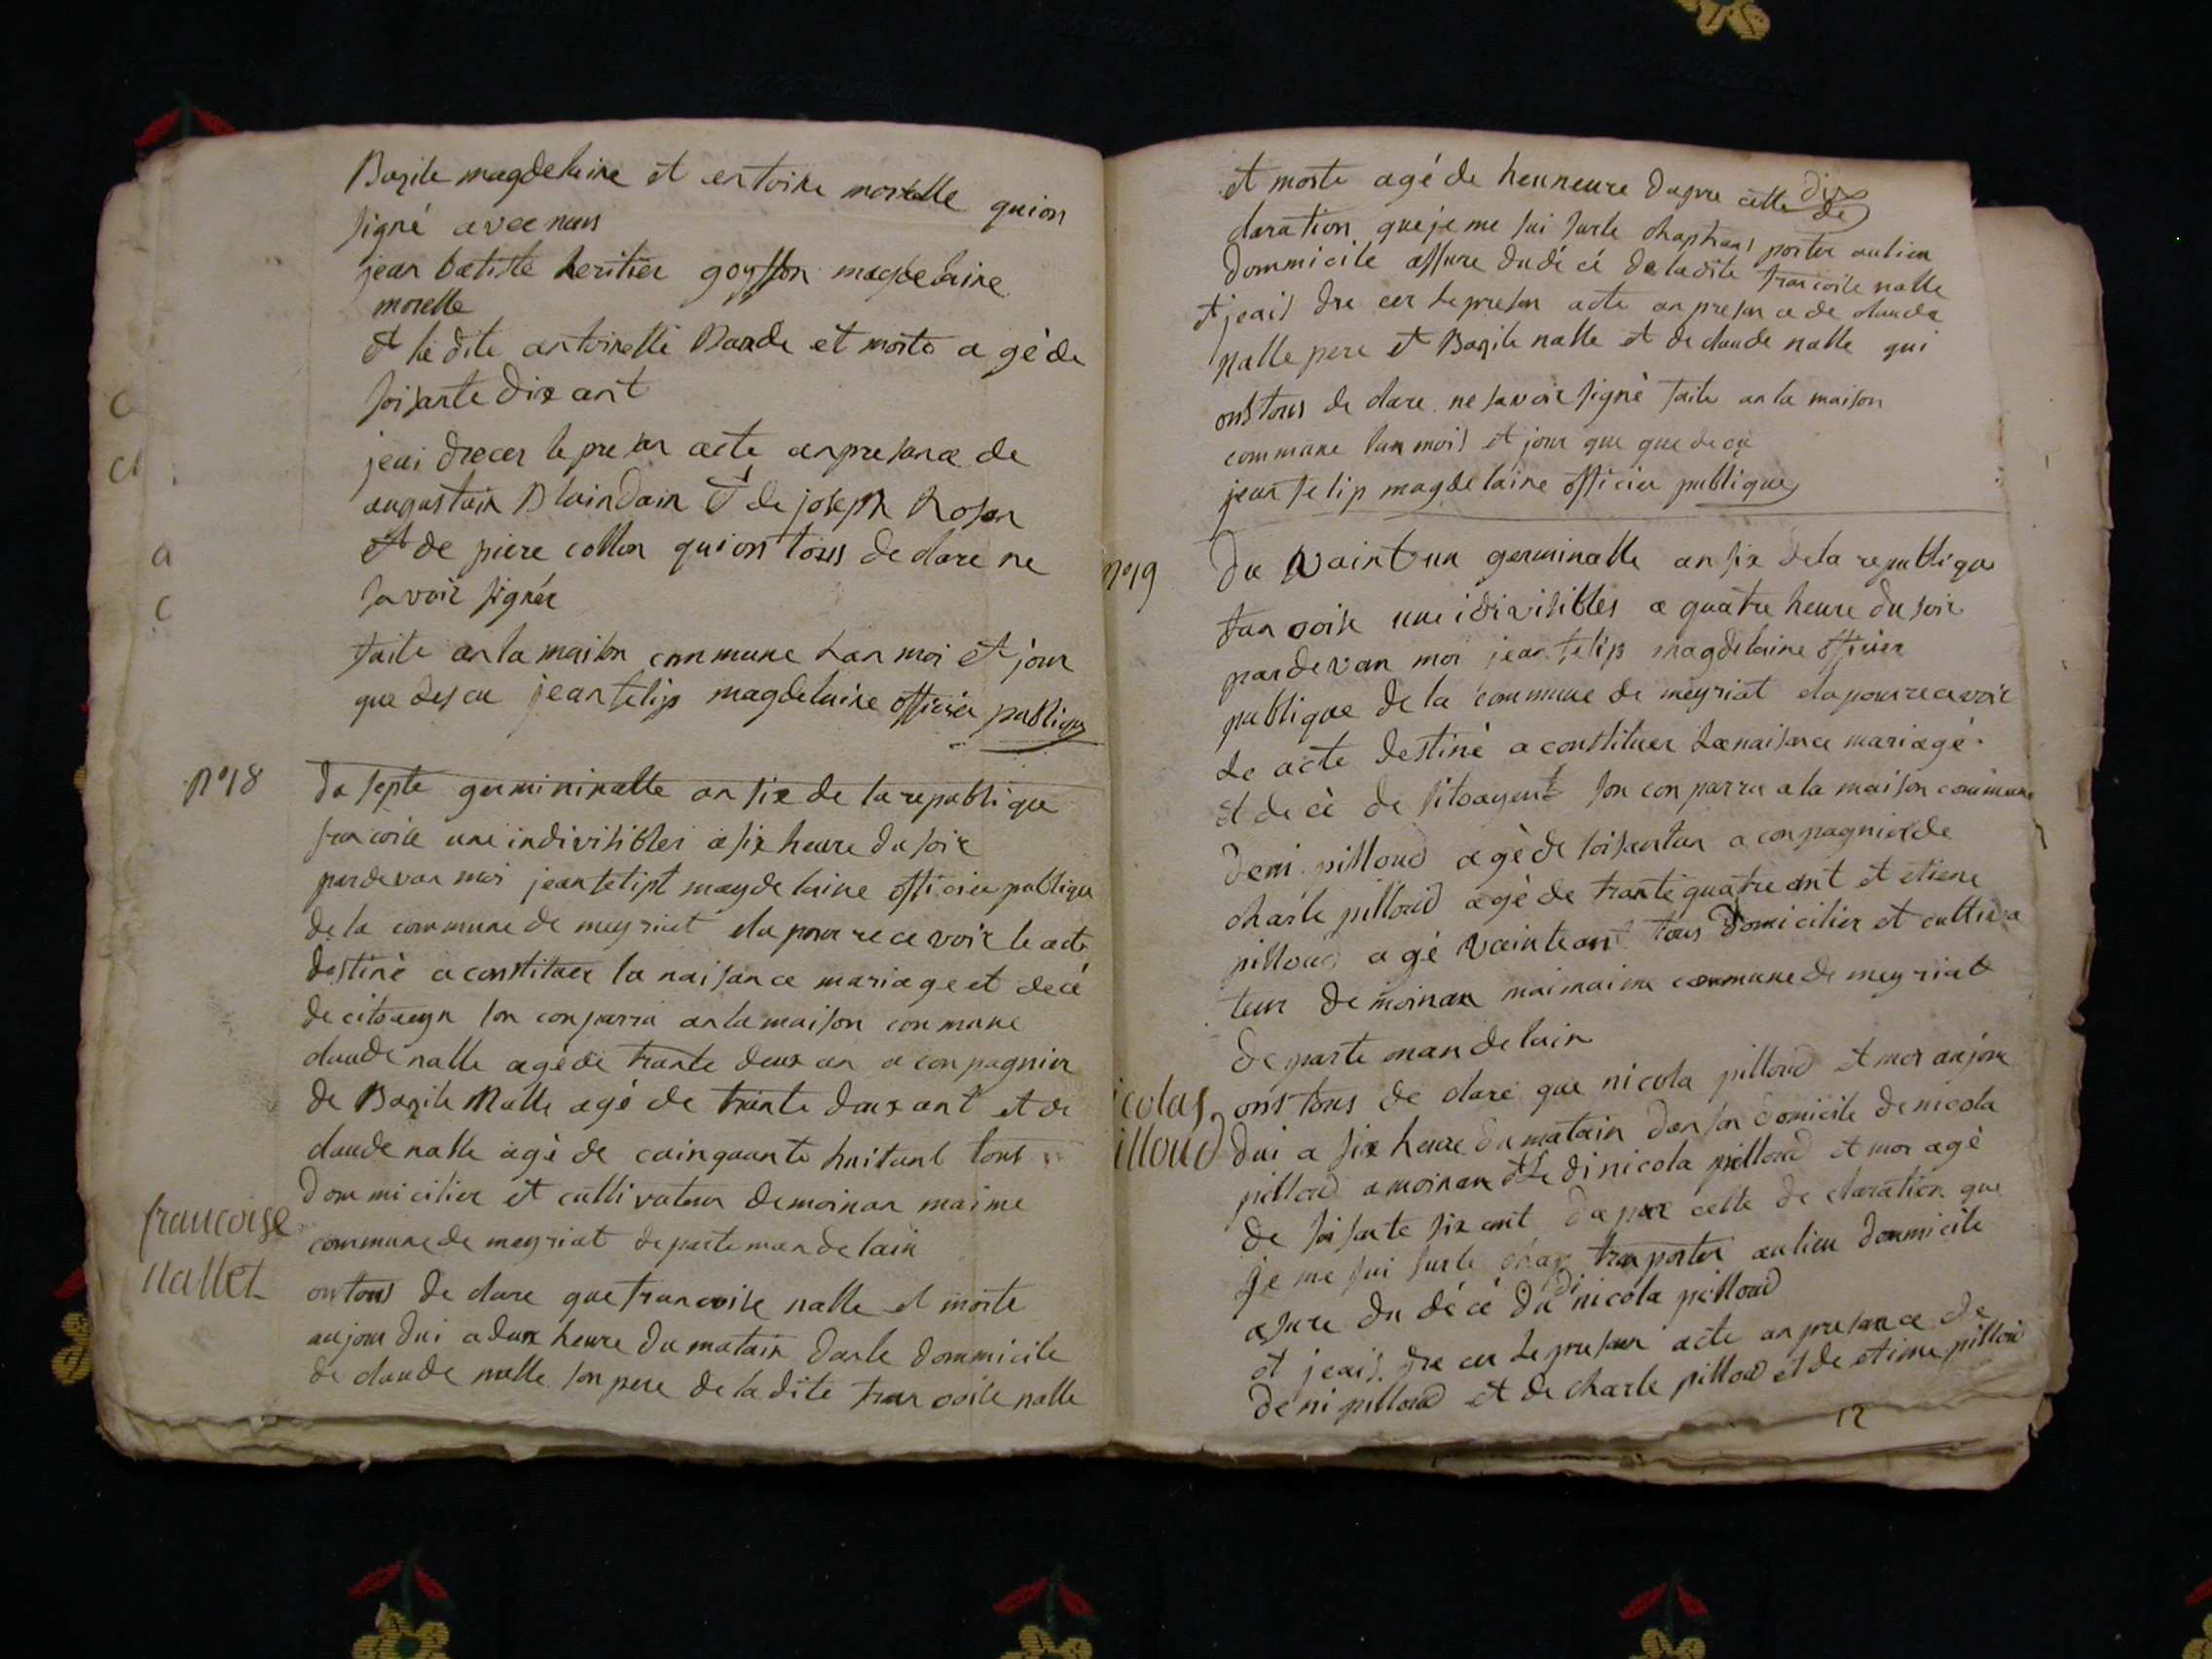 Bazile magdelaine et antoine morelle quion
signé avec nous
jean batiste heritier goyffon magdelaine
morelle
et la dite antoinette Bande et morte a gé de
soisante dix ant
jeai drecer le presan acte anpresance de
augustain Blaindain et de joseph Rosan
et de piere collon quion tous de clare ne
savoir signér
faite an la maison commune Lan moi et jour
que descu jean felip magdelaine officier publique
n°18
du septe germininalle an six de la republique
francoise une indivisibles a six heure du soir
pardevan moi jean felipt magdelaine officier publique
de la commune de meyriat elu pour recevoir le acte
destiné a constituer la naisance mariage et decé
de citoaeyn son conparru an la maison conmune
claude nalle agé de trante deux an a conpagnier
de Bazile Nalle agé de trante doux ant et de
claude nalle agé de cainquante huitant tous
dommicilier et cultivateur demoinan maime
commune de meyriat departeman delain
francoise
nallet
ontous de clare que francoise nalle et morte
aujour dui a deux heure du matain dan le dommicile
de claude nalle son pere de la dite francoise nalle
et morte agé de heunneure dapre cette dix de
claration que je me sui surle chaptrans porter aulieu
dommicile assure dudé cé de ladite francoise nalle
et jeais dre cer le presan acte an presan ce de claude
nalle pere et Bazile nalle et de claude nalle qui
onstous de clare ne savoir signé faite an la maison
commune lan mois et jour que que de cu
jean felip magdelaine officier publique
n°19
du vaint un germinalle an six dela republique
fran coise une idivisibles a quatre heure du soir
pardevan moi jean felip magdelaine officier
publique de la commune de meyriat elu pour recevoir
le acte destiné a constituer La naisance mariagé
et de cé de sitoayent son con parru a la maison commune
deni pilloud agé de soisantan a conpagnier de
charle pilloud agé de trante quatre ant et etiene
pilloud agé vainteant tous domicilier et cultiva
teur de moinan maimaime commune de meyriat
de parte man de lain
icolas
illoud
onstous de claré que nicola pilloud et mor aujour
dui a six heure du matain dan son domicile de nicola
pilloud a moinan et le di nicola pilloud et mor agé
de soi sante six ant dapre cette de claration que
je me sui surle chap tran porter au lieu dommicile
asure du dé cé du di nicola pilloud
et jeais dre cer le presan acte an presance de
de ni pilloud et de charle pilloud et de etiene pilloud
12